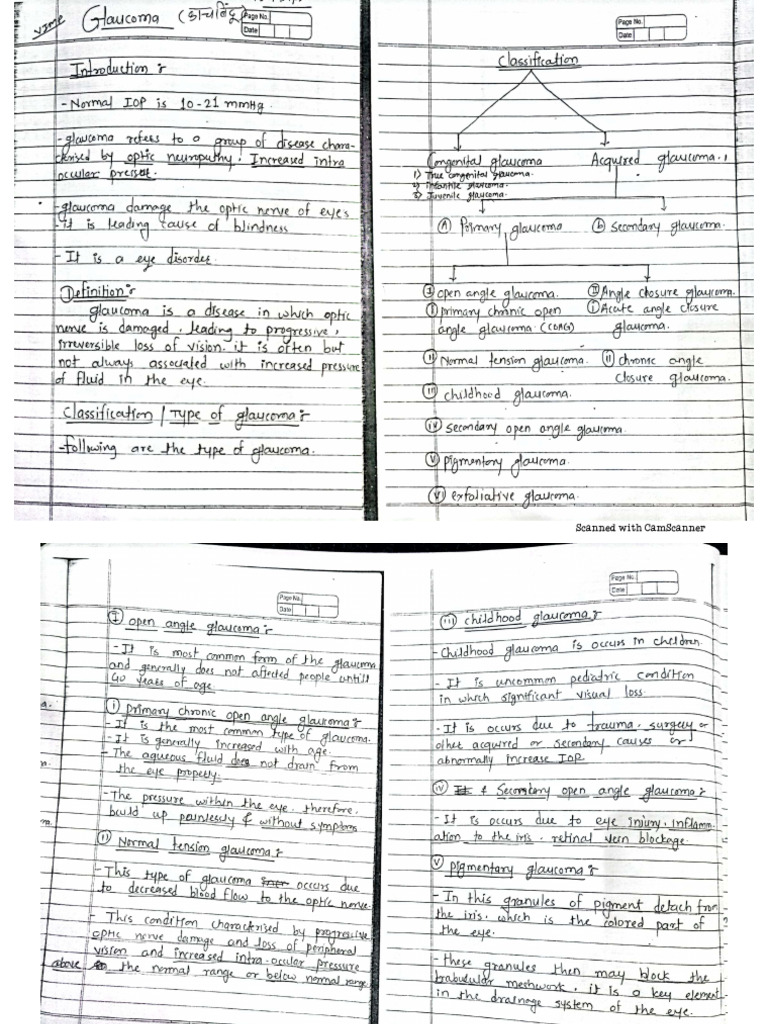 VIMP Glaucoma (काचबिंदु)
Page No.
Date
Introduction :-
- Normal IOP is 10-21 mmHg
- glaucoma refers to a group of disease chara-
cterised by optic neuropathy. Increased intra
occular pressure.
- glaucoma damage the optic nerve of eyes
- it is leading cause of blindness
- It is a eye disorder.
Definition :-
glaucoma is a disease in which optic
nerve is damaged, leading to progressive,
irreversible loss of vision. it is often but
not always associated with increased pressure
of fluid in the eye.
Classification / Type of glaucoma :-
- following are the type of glaucoma.
Page No.
Date
Classification
Congenital glaucoma
1) True congenital glaucoma.
2) Infantile glaucoma.
3) Juvenile glaucoma.
Acquired glaucoma.
(A) Primary glaucoma
(b) Secondary glaucoma.
(I) open angle glaucoma.
(i) primary chronic open
angle glaucoma (COAG)
(ii) Normal tension glaucoma.
(iii) childhood glaucoma.
(iv) secondary open angle glaucoma.
(v) pigmentory glaucoma.
(vi) exfoliative glaucoma.
(II) Angle closure glaucoma.
(i) Acute angle closure
glaucoma.
(ii) chronic angle
closure glaucoma.
Scanned with CamScanner
Page No.
Date
(I) open angle glaucoma :-
- It is most common form of the glaucoma
and generally does not affected people untill
40 years of age.
(i) primary chronic open angle glaucoma :-
- It is the most common type of glaucoma.
- It is generally increased with age.
- The aqueous fluid does not drain from
the eye properly.
- The pressure within the eye. therefore.
build up painlessly & without symptoms
(ii) Normal tension glaucoma :-
- This type of glaucoma occurs due
to decreased blood flow to the optic nerve.
- This condition characterised by progressive
optic nerve damage and loss of peripheral
vision and increased intra-ocular pressure
above the normal range or below normal range.
Page No.
Date
(iii) childhood glaucoma :-
- Childhood glaucoma is occurs in children.
- It is uncommon pediatric condition
in which significant visual loss.
- It is occurs due to trauma, surgery or
other acquired or secondary causes or
abnormally increase IOP
(iv) Secondary open angle glaucoma :-
- It is occurs due to eye injury, inflamm-
ation to the iris, retinal vein blockage.
(v) pigmentary glaucoma :-
- In this granules of pigment detach from
the iris, which is the colored part of
the eye.
- these granules then may block the
trabucular meshwork, it is a key element
in the drainage system of the eye.